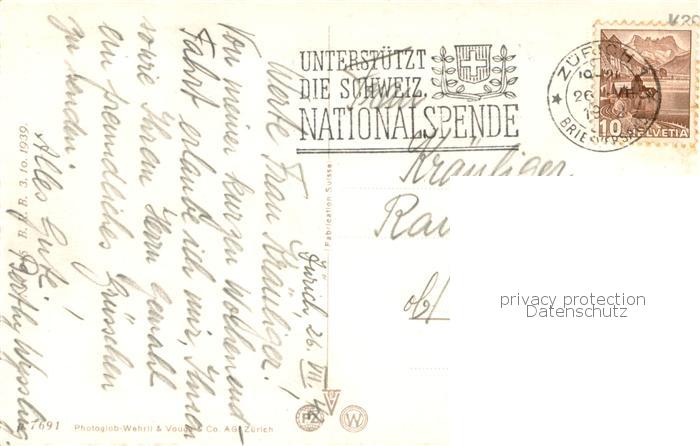 Zürich, 26. VII. 4
Werte Frau Kräuliger!
Von meiner kurzen Wochenend-
Fahrt erlaube ich mir, Ihnen
sowie Ihrem Herrn Gemahl
ein freundliches Grüsschen
zu senden.
Alles Gute!
Berthy Wyssling
B. R. B. 3. 10. 1939.
7691 Photoglob-Wehrli & Vouga & Co. AG. Zürich
Fabrication Suisse
PX
W
UNTERSTÜTZT
DIE SCHWEIZ.
NATIONALSPENDE
ZÜRICH
26. VII.
BRIEFVERSAND
10 HELVETIA
Frau
Kräuliger
Rau
ob/
privacy protection
Datenschutz